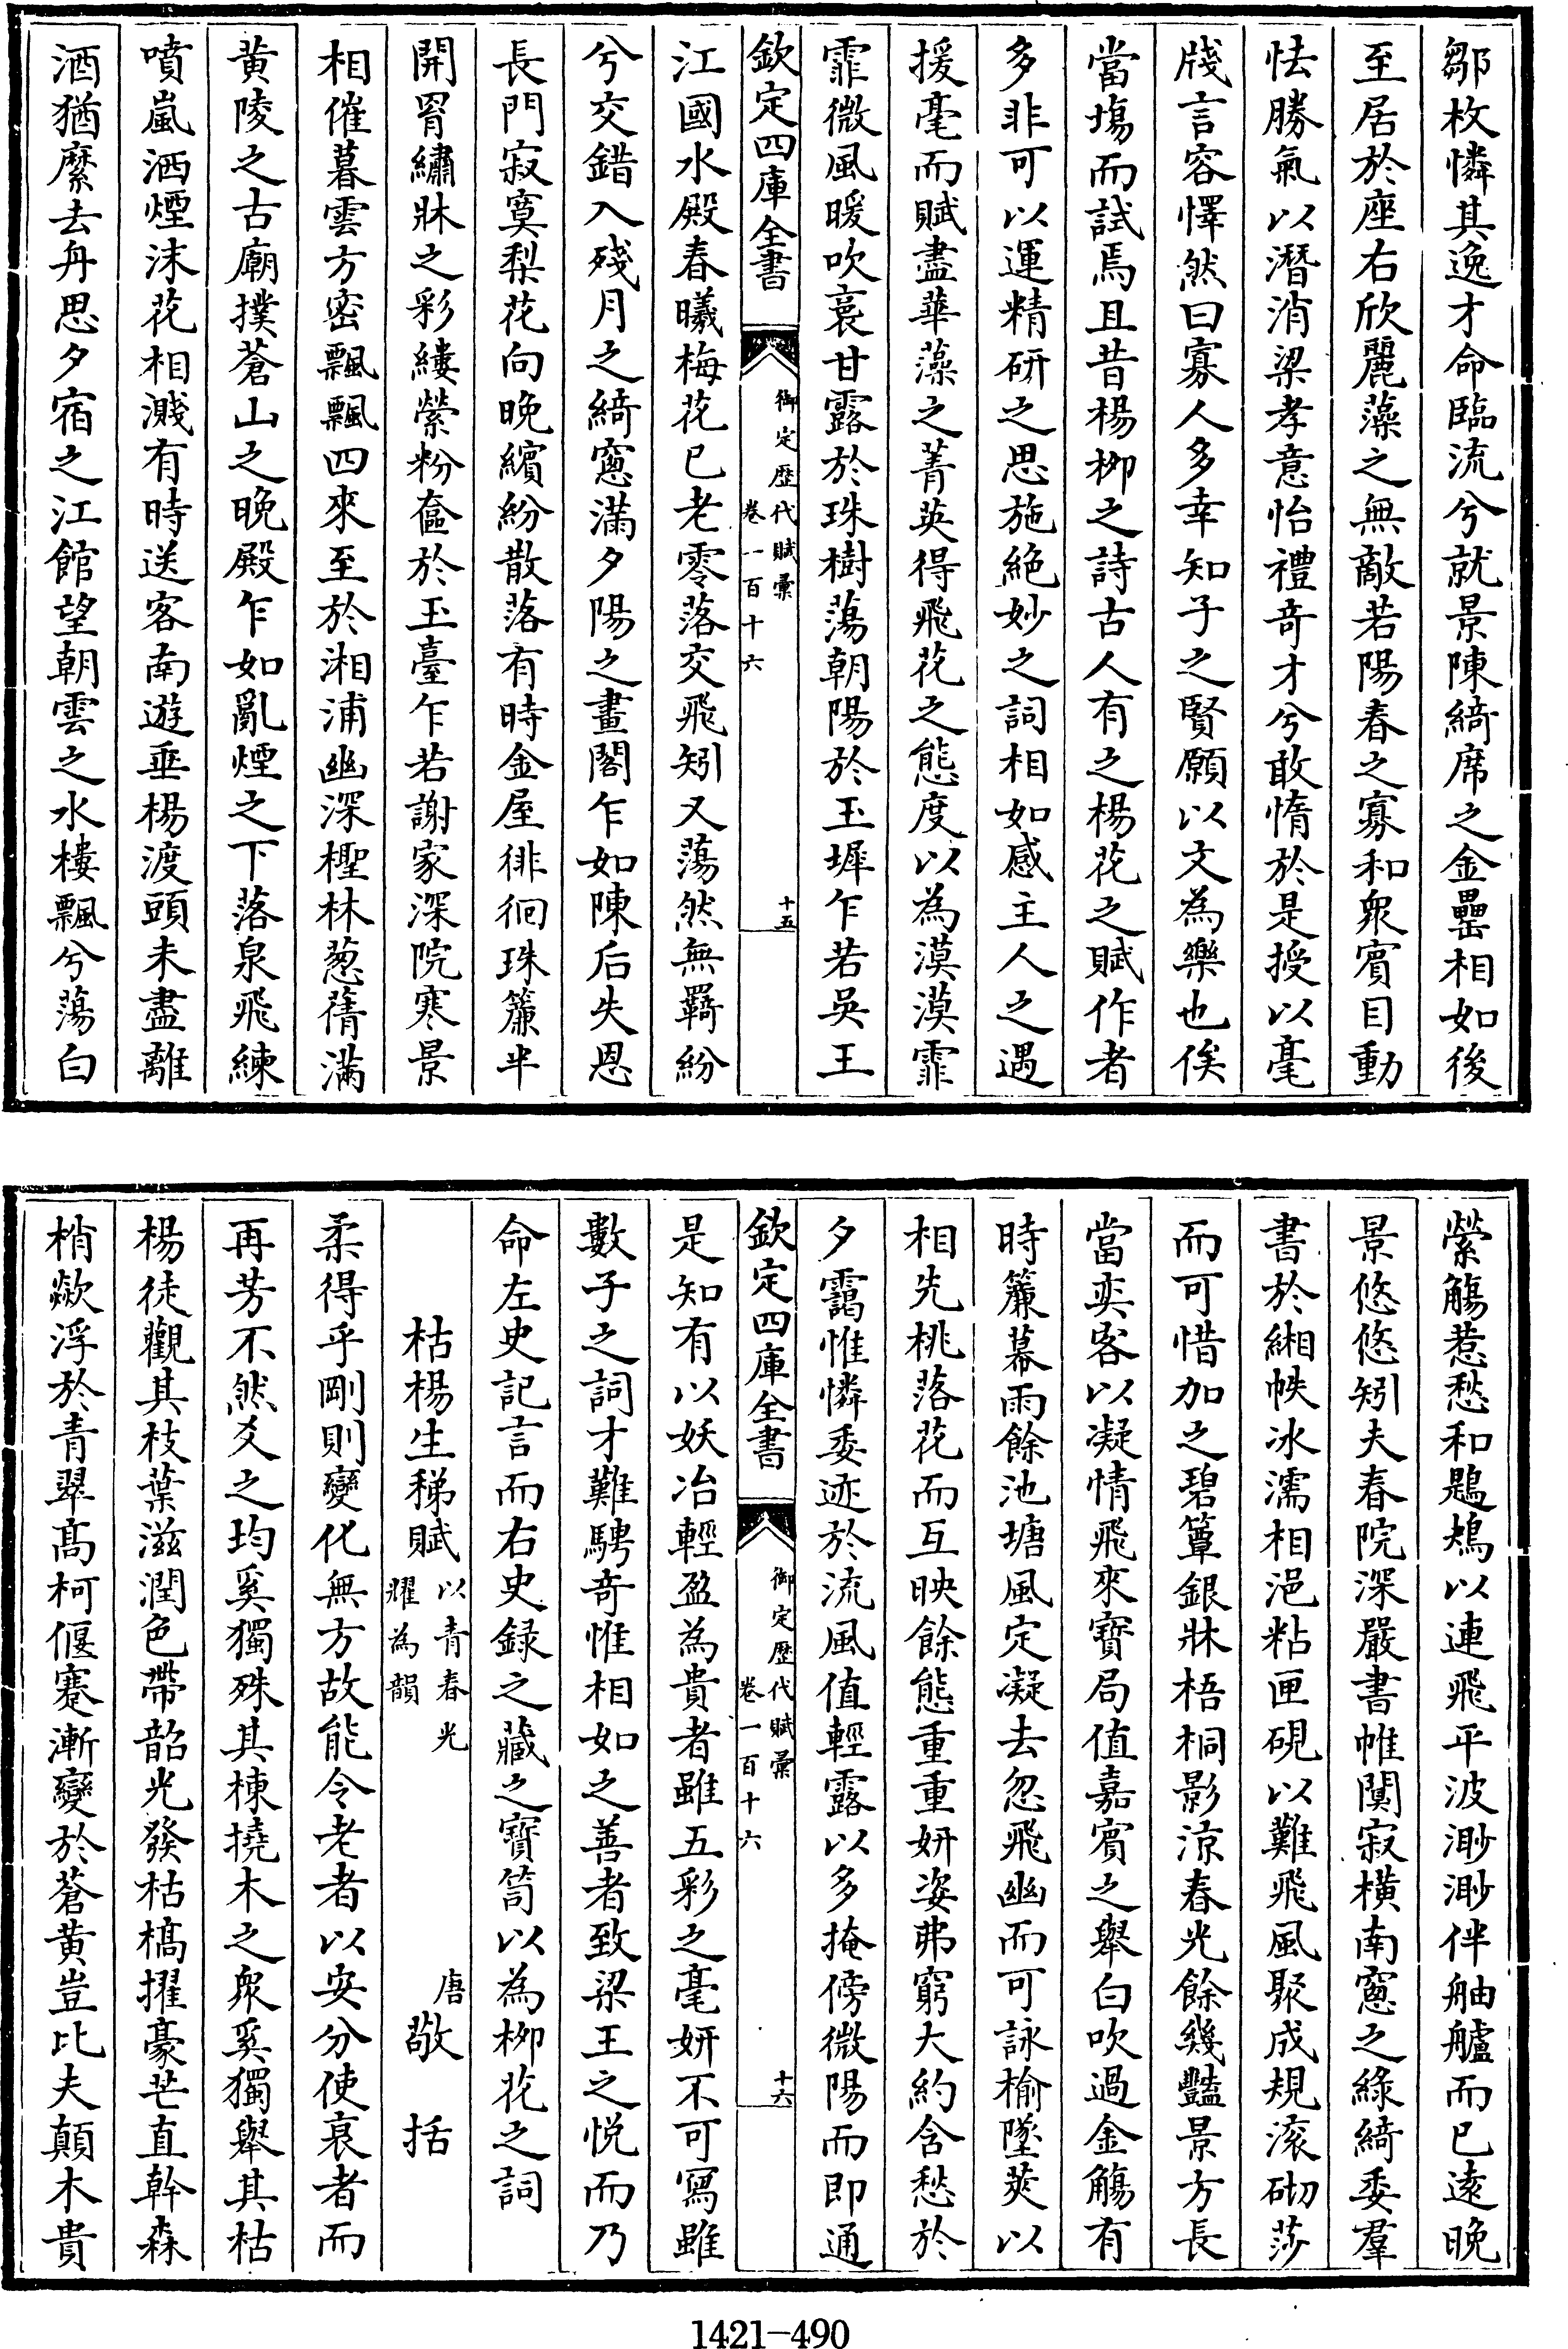 鄒枚憐其逸才命臨流兮就景陳綺席之金罍相如後
至居於座右欣麗藻之無敵若陽春之寡和衆賓目動
怯勝氣以潛消梁孝意怡禮奇才兮敢惰於是授以毫
牋言容懌然曰寡人多幸知子之賢願以文為樂也俟
當塲而試焉且昔楊栁之詩古人有之楊花之賦作者
多非可以運精研之思施絶妙之詞相如感主人之遇
援毫而賦盡華藻之菁英得飛花之態度以為漠漠霏
霏微風暖吹裛甘露於珠樹蕩朝陽於玉墀乍若吳王
欽定四庫全書
御定歷代賦彙
卷一百十六
十五
江國水殿春曦梅花已老零落交飛矧又蕩然無羈紛
兮交錯入殘月之綺窻滿夕陽之畫閣乍如陳后失恩
長門寂寞梨花向晚繽紛散落有時金屋徘徊珠簾半
開罥繡牀之彩縷縈粉奩於玉臺乍若謝家深院寒景
相催暮雲方密飄飄四來至於湘浦幽深檉林葱蒨滿
黄陵之古廟撲蒼山之晚殿乍如亂煙之下落泉飛練
噴嵐洒煙沫花相濺有時送客南遊垂楊渡頭未盡離
酒猶縻去舟思夕宿之江館望朝雲之水樓飄兮蕩白
縈觴惹愁和鶗鴂以連飛平波渺渺伴舳艫而已遠晚
景悠悠矧夫春院深嚴書帷闃寂横南窻之綠綺委羣
書於緗帙冰濡相浥粘匣硯以難飛風聚成規滚砌莎
而可惜加之碧簟銀牀梧桐影涼春光餘幾豔景方長
當奕客以凝情飛來寶局值嘉賓之舉白吹過金觴有
時簾幕雨餘池塘風定凝去忽飛幽而可詠榆墜莢以
相先桃落花而互映餘態重重妍姿弗窮大約含愁於
夕靄惟憐委迹於流風值輕露以多掩傍微陽而即通
欽定四庫全書
御定歷代賦彙
卷一百十六
十六
是知有以妖冶輕盈為貴者雖五彩之毫妍不可寫雖
數子之詞才難騁奇惟相如之善者致梁王之悦而乃
命左史記言而右史録之藏之寶笥以為栁花之詞
枯楊生稊賦以青春光耀為韻 唐敬括
柔得乎剛則變化無方故能令老者以安分使衰者而
再芳不然爻之均奚獨殊其棟撓木之衆奚獨舉其枯
楊徒觀其枝葉滋潤色帶韶光發枯槁擢豪芒直幹森
梢歘浮於青翠高柯偃蹇漸變於蒼黄豈比夫顛木貴
1421-490